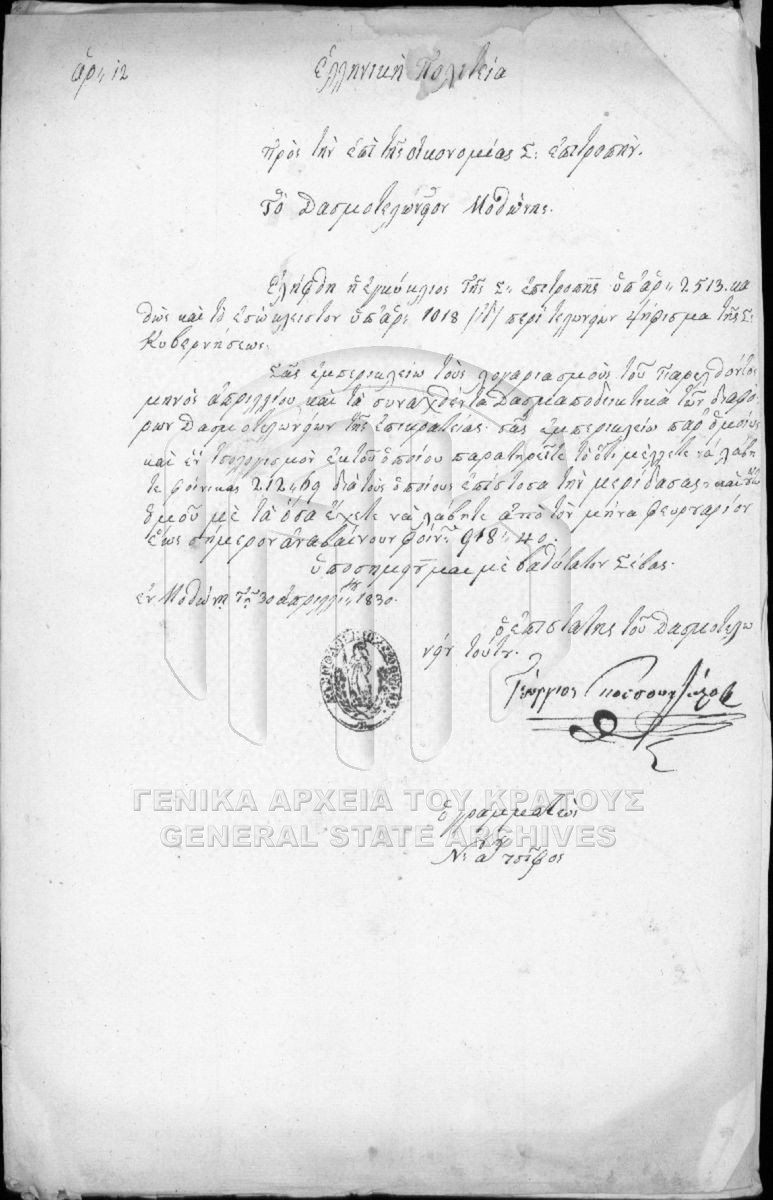 ἀρ: 12
Ἑλληνικὴ Πολιτεία
Πρὸς τὴν ἐπὶ τῆς οἰκονομίας Σ: ἐπιτροπήν.
Τὸ Δασμοτελώνιον Μοθώνης.
Ἐλήφθη ἡ ἐγκύκλιος τῆς Σ: ἐπιτροπῆς ὑπ' ἀρ: 2513. κα
θὼς καὶ τὸ ἐσώκλειστον ὑπ' ἀρ: 1018 περὶ τελωνίων ψήφισμα τῆς Σ:
Κυβερνήσεως.
Σᾶς ἐμπερικλείω τοὺς λογαριασμοὺς τοῦ παρελθόντος
μηνὸς ἀπριλλίου καὶ τὰ συναχθέντα Δασμαποδεικτικὰ τῶν διαφό-
ρων Δασμοτελωνίων τῆς ἐπικρατείας. σᾶς ἐμπερικλείω παρ' ὁμοίως
καὶ ἓν ἰσολογισμὸν ἐκ τοῦ ὁποίου παρατηρεῖτε τὸ ὅτι μέλλετε νὰ λάβη
τε φοίνικας 212:69 διὰ τοὺς ὁποίους ἐπίστοσα τὴν μερίδα σας. καὶ
ὁμοῦ μὲ τὰ ὅσα ἔχετε νὰ λάβητε ἀπὸ τὸν μῆνα φευρουάριον
ἕως σήμερον ἀναβαίνουν φοίν: 918:40.
ὑποσημειοῦμαι μὲ βαθύτατον σέβας.
ἐν Μοθώνῃ τῇ 30 ἀπριλλίου 1830.
ὁ ἐπιστάτης τοῦ Δασμοτελω
νίου τούτου.
Γεώργιος
ὁ γραμματεὺς
Ν:
ΓΕΝΙΚΑ ΑΡΧΕΙΑ ΤΟΥ ΚΡΑΤΟΥΣ
GENERAL STATE ARCHIVES